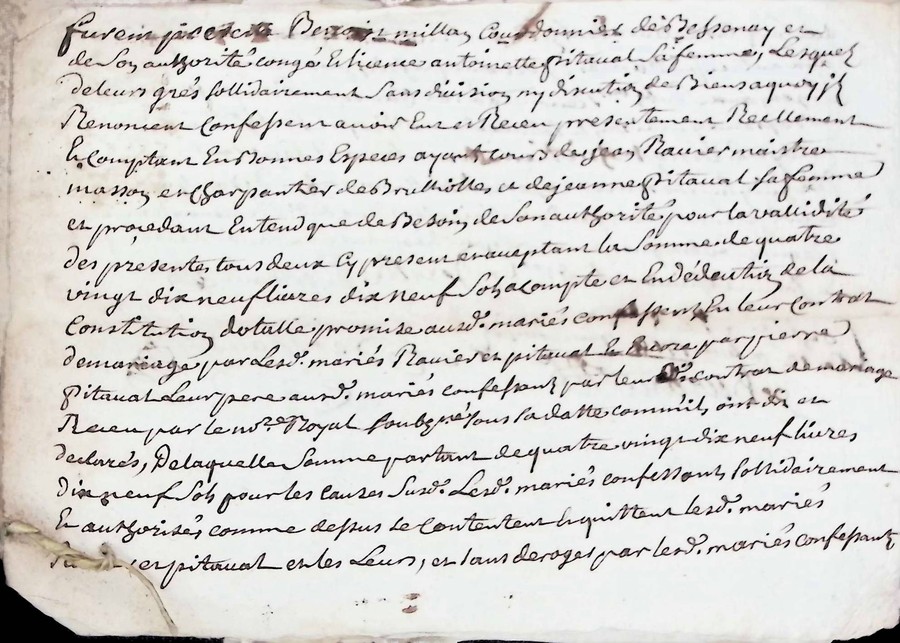 furent presents Benoist millan Courdonnier de Bessenay et
de Son authorité congé Et licence antoinette pitaval Sa femme, Lesquelz
de leurs grés sollidairement Sans division ny discution de Biens a quoy ilz
Renoncent Confessent avoir Eut et Receu presentement Reellement
Et Comptant En Bonnes Especes ayant Cours de jean Ravier maistre
masson et Charpantier de Brulliolles et de jeanne pitaval sa femme
et procedant Entend que de Besoin de Son authorité pour la vallidité
des presentes tous deux Cy present et aceptant la Somme de quatre
vingt dix neuf livres dix neuf Sols a Compte et En déduction de la
Constitution dotalle promise ausd. mariés confessent En leur Contrat
de mariage par Lesd. mariés Ravier et pitaval Et par pierre
pitaval Leur pere ausd. mariés confessantz par leur contrat de mariage
Receu par le no.re Royal soubzné sous sa datte comm'ils ont dit et
declarés, De laquelle Somme partant de quatre vingt dix neuf livres
dix neuf Sols pour les Causes Susd. Lesd. mariés confessants sollidairement
Et authorisés comme dessus Se Contentent Et quittent lesd. mariés
et pitaval et les Leurs, et sans deroger par lesd. mariés confessantz